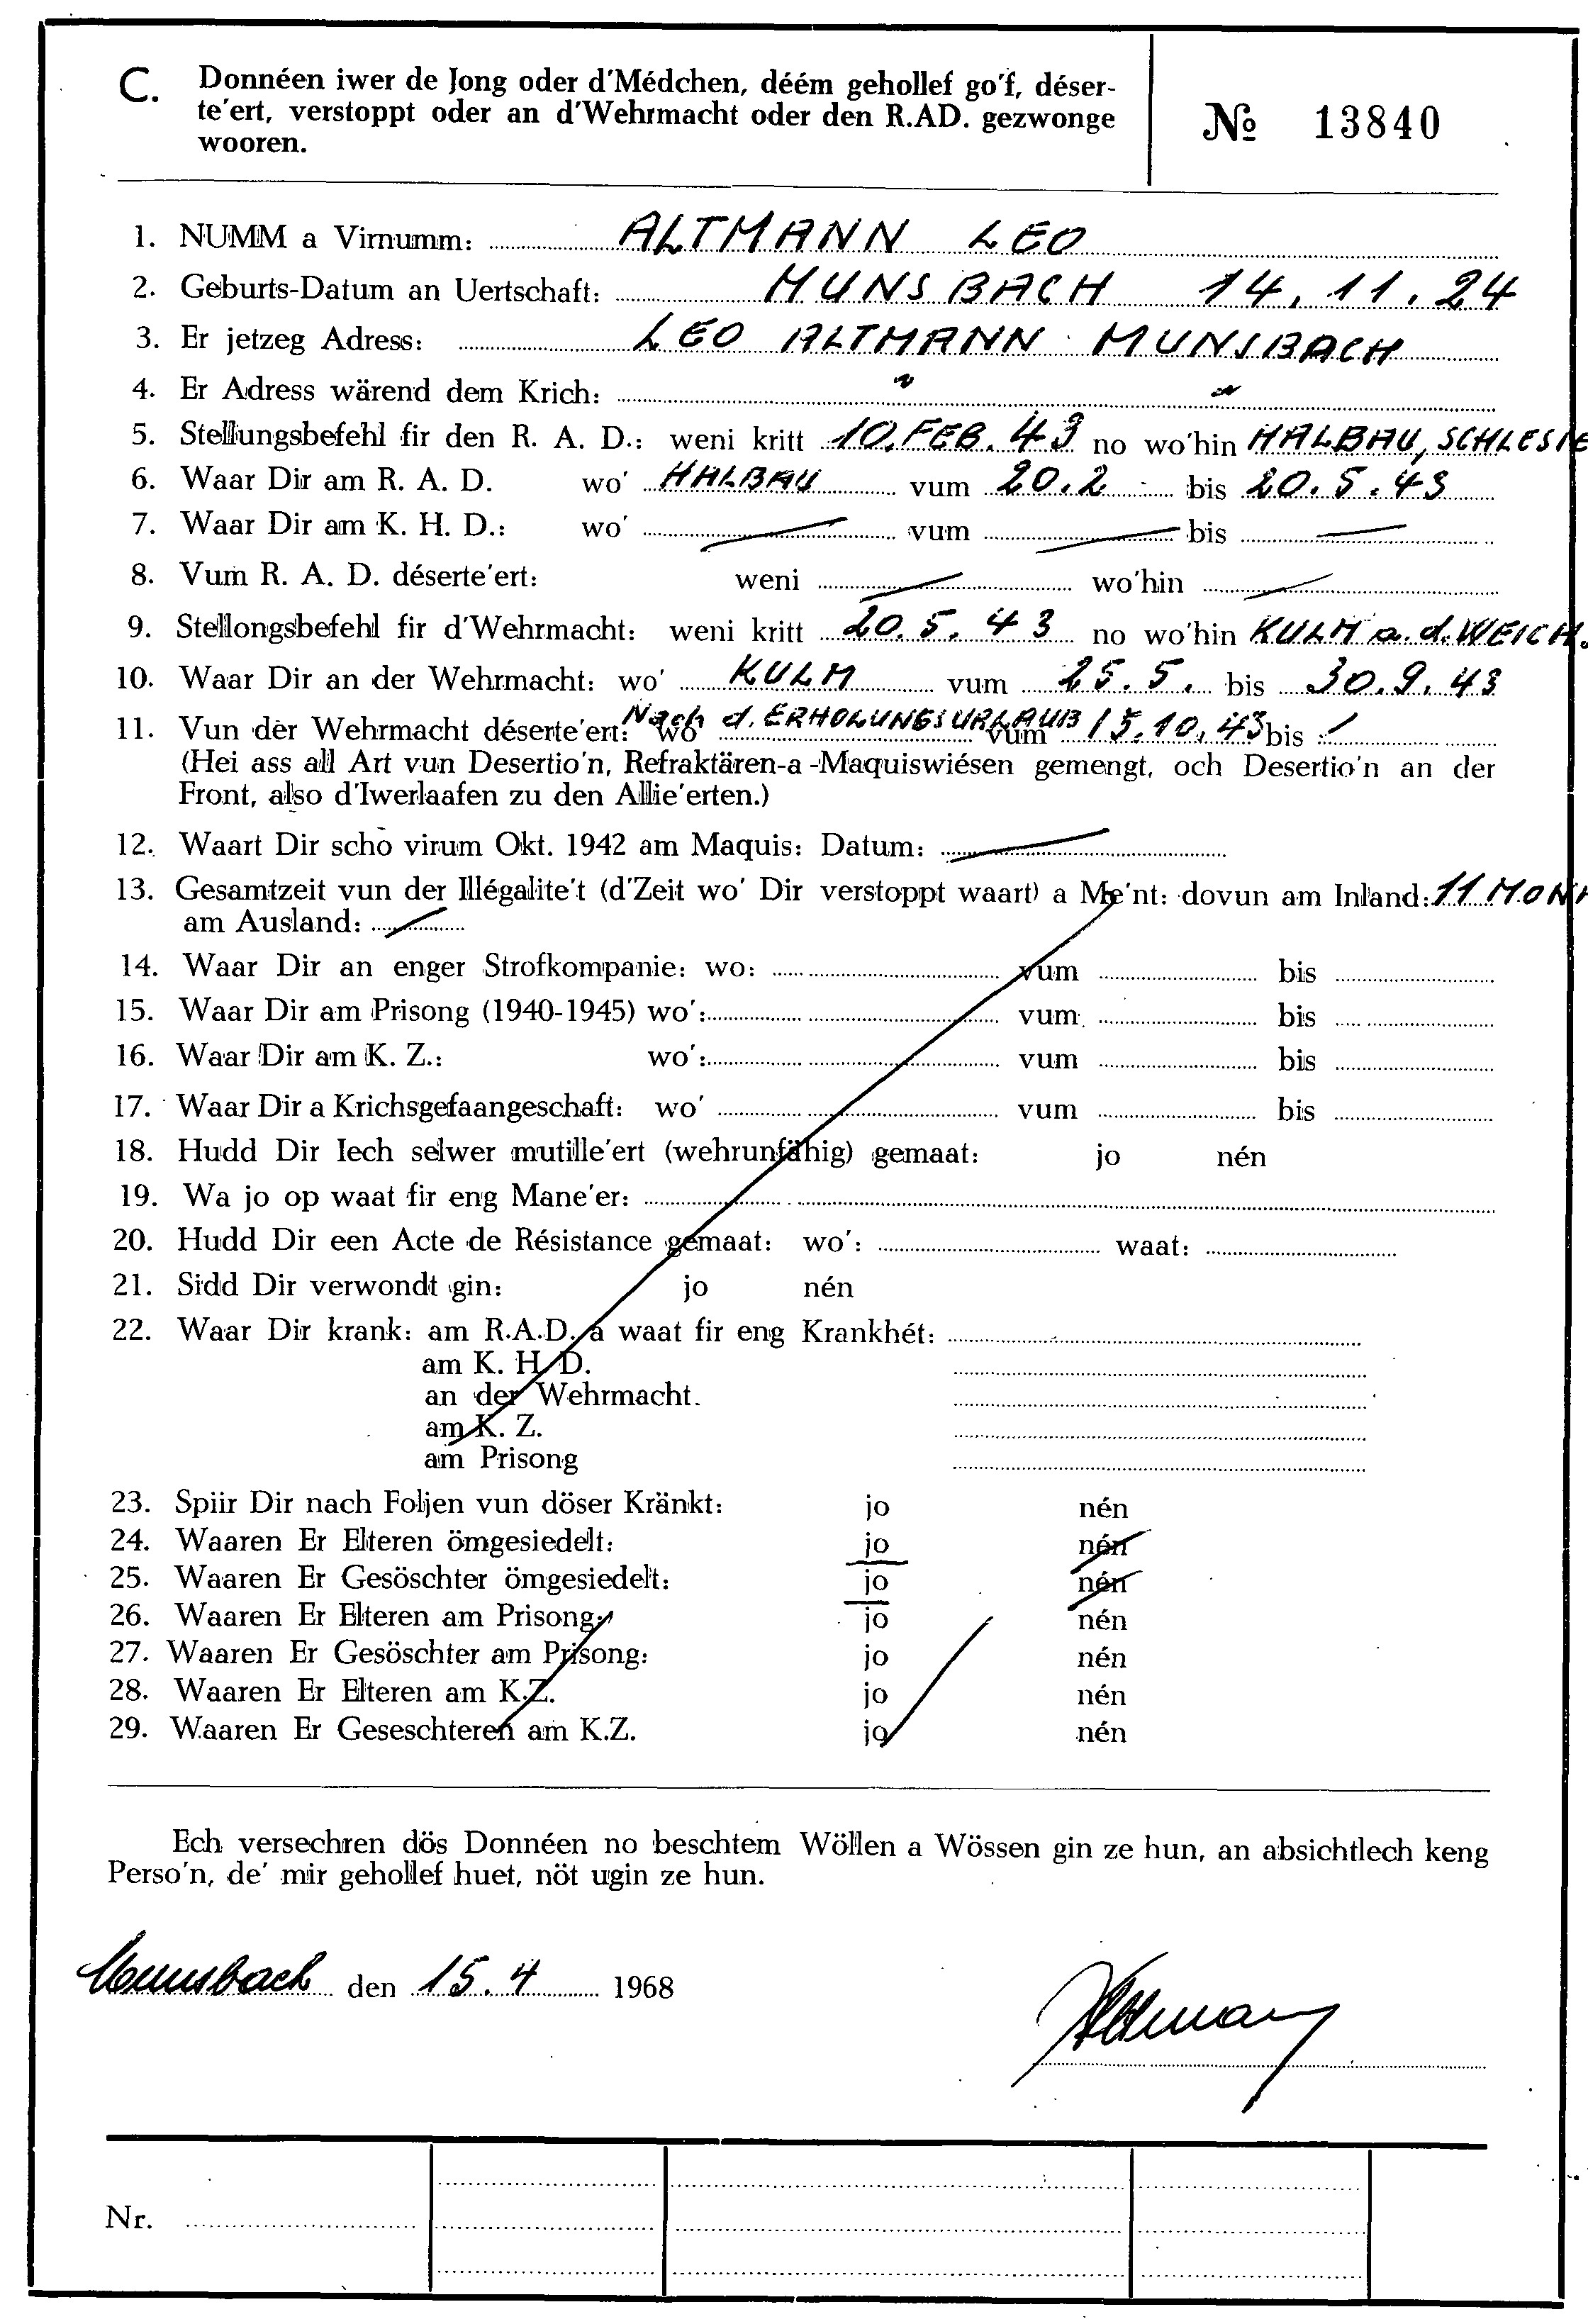 C. Donnéen iwer de Jong oder d'Médchen, déém gehollef go'f, déser-
te'ert, verstoppt oder an d'Wehrmacht oder den R.AD. gezwonge
wooren.
№ 13840
1. NUMM a Virnumm: ALTMANN LEO
2. Geburts-Datum an Uertschaft: MUNSBACH 14.11.24
3. Er jetzeg Adress: LEO ALTMANN MUNSBACH
4. Er Adress wärend dem Krich: " "
5. Stellungsbefehl fir den R. A. D.: weni kritt 10.FEB.43 no wo'hin HALBAU, SCHLESIE
6. Waar Dir am R. A. D. wo' HALBAU vum 20.2 bis 20.5.43
7. Waar Dir am K. H. D.: wo' — vum — bis —
8. Vum R. A. D. déserte'ert: weni — wo'hin —
9. Stellongsbefehl fir d'Wehrmacht: weni kritt 20.5.43 no wo'hin KULM a.d.WEICH.
10. Waar Dir an der Wehrmacht: wo' KULM vum 25.5. bis 30.9.43
11. Vun der Wehrmacht déserte'ert: wo' Nach d. ERHOLUNGSURLAUB vum 15.10.43 bis /
(Hei ass all Art vun Desertio'n, Refraktären-a -Maquiswiésen gemengt, och Desertio'n an der
Front, also d'Iwerlaafen zu den Allie'erten.)
12. Waart Dir scho virum Okt. 1942 am Maquis: Datum: —
13. Gesamtzeit vun der Illégalite't (d'Zeit wo' Dir verstoppt waart) a Me'nt: dovun am Inland: 11 MONA
am Ausland: —
14. Waar Dir an enger Strofkompanie: wo: vum bis
15. Waar Dir am Prisong (1940-1945) wo': vum bis
16. Waar Dir am K. Z.: wo': vum bis
17. Waar Dir a Krichsgefaangeschaft: wo' vum bis
18. Hudd Dir Iech selwer mutille'ert (wehrunfähig) gemaat: jo nén
19. Wa jo op waat fir eng Mane'er:
20. Hudd Dir een Acte de Résistance gemaat: wo': waat:
21. Sidd Dir verwondt gin: jo nén
22. Waar Dir krank: am R.A.D. a waat fir eng Krankhét:
am K. H. D.
an der Wehrmacht.
am K. Z.
am Prisong
23. Spiir Dir nach Foljen vun döser Kränkt: jo nén
24. Waaren Er Elteren ömgesiedelt: jo nén
25. Waaren Er Gesöschter ömgesiedelt: jo nén
26. Waaren Er Elteren am Prisong: jo nén
27. Waaren Er Gesöschter am Prisong: jo nén
28. Waaren Er Elteren am K.Z. jo nén
29. Waaren Er Geseschteren am K.Z. jo nén
Ech versechren dös Donnéen no beschtem Wöllen a Wössen gin ze hun, an absichtlech keng
Perso'n, de' mir gehollef huet, nöt ugin ze hun.
Munsbach den 15.4 1968
Altmann
Nr.